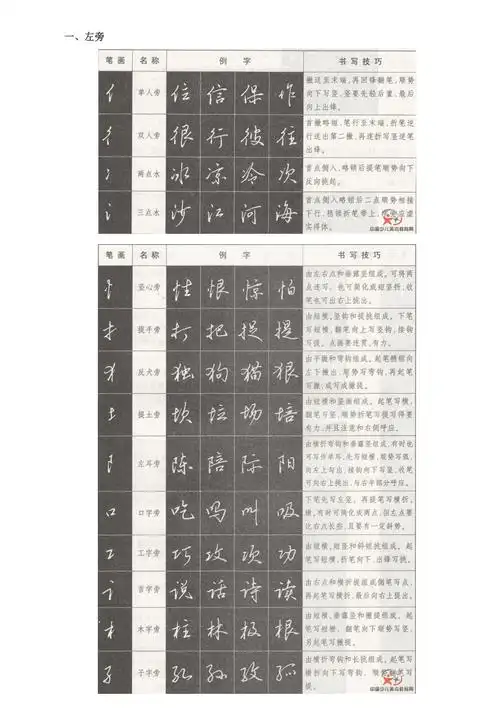 一、左旁
笔画 名称 例字 书写技巧
亻 单人旁 住 信 保 作 撇送至末端，再回锋翻笔，顺势
向下写竖，竖要先轻后重，最后
向上出锋。
彳 双人旁 很 行 彼 往 首撇略短，笔行至末端，折笔逆
行送出第二撇，再连折写竖逆笔
出锋。
冫 两点水 冰 凉 冷 次 首点侧入，略顿后提笔顺势向下
反向挑起。
氵 三点水 沙 江 河 海 首点侧入略顿后二点顺势相接
下行，
实得体。
笔画 名称 例字 书写技巧
忄 竖心旁 性 恨 惊 怕 由左右点和垂露竖组成。可将两
点连写，也可简化成短竖折，收
笔也可出右上挑出。
扌 提手旁 打 把 捉 提 由短横、竖钩和提组成。下笔
写短横，翻笔向上写竖钩，接钩
写提。点画要连贯、有力。
犭 反犬旁 独 狗 猫 狠 由平撇和弯钩组成。起笔稍顿向
左下撇出，顺势写弯钩，再起笔
写撇，或写成撇提。
土 提土旁 坎 垃 场 培 由短横和竖画组成。起笔写短横，
翻笔写竖，顺势折笔写提写得要
有力，并且注意和右侧呼应。
阝 左耳旁 陈 陪 际 阳 由横折弯钩和垂露竖组成，有时也
可写作单耳。先写短横，顺势写弧，
向左上勾出，接钩向下写竖，收笔
可向右上挑出，与右半部分呼应。
口 口字旁 吃 吗 叫 吸 下笔先写左竖，再提笔写横折，
横，有时可简化成两点，但左点要
比右点长些，且要有一定斜势。
工 工字旁 巧 攻 项 功 由短横、短竖和斜短挑组成。起
笔写短横，折笔向下，出锋写挑。
讠 言字旁 说 话 诗 读 由右点和横折提组成侧笔写点，
再起笔写横折，最后向右上提出。
木 木字旁 柱 林 极 根 由短横、垂露竖和撇提组成。起
笔写短横，翻笔向下顺势写竖，
另起笔写撇提。
子 子字旁 孔 孙 孜 孤 由横折弯钩和长挑组成。起笔写
横折向下写弯钩，顺势翻笔写
提。